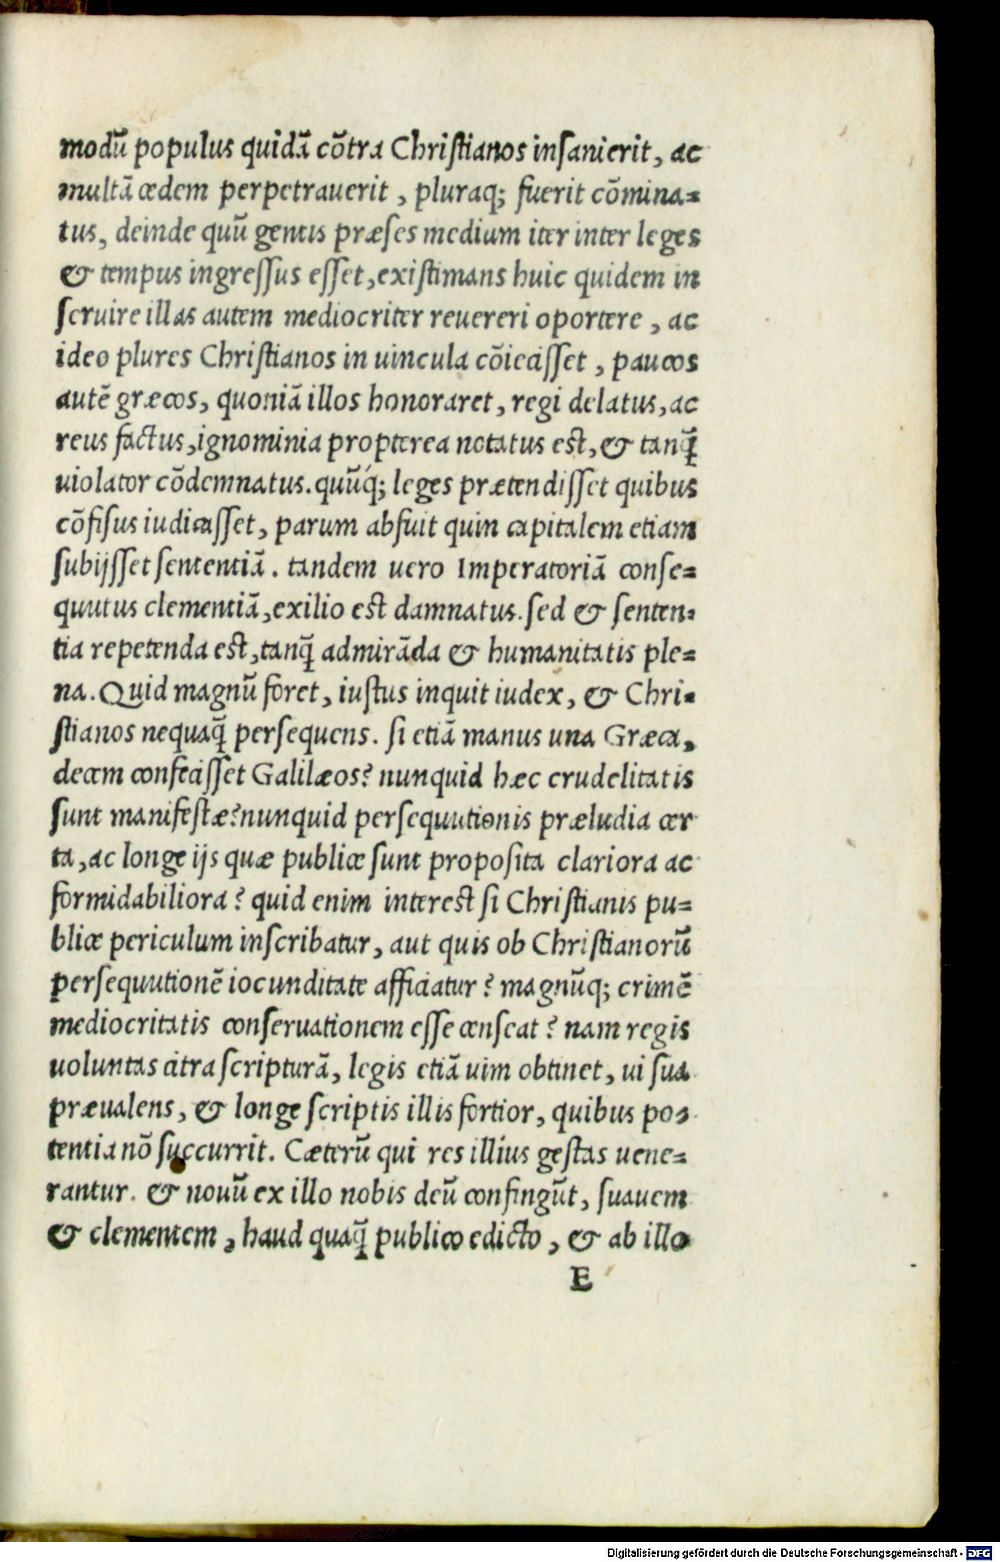 modū populus quidā cōtra Christianos insanierit, ac
multā cædem perpetrauerit, pluraq; fuerit cōmina=
tus, deinde quū gentis præses medium iter inter leges
& tempus ingressus esset, existimans huic quidem in
seruire illas autem mediocriter reuereri oportere, ac
ideo plures Christianos in uincula cōiecisset, paucos
autē græcos, quoniā illos honoraret, regi delatus, ac
reus factus, ignominia propterea notatus est, & tanq̄
uiolator cōdemnatus. quūq́; leges prætendisset quibus
cōfisus iudicasset, parum abfuit quin capitalem etiam
subijsset sententiā. tandem uero Imperatoriā conse=
quutus clementiā, exilio est damnatus. sed & senten=
tia repetenda est, tanq̄ admirāda & humanitatis ple=
na. Quid magnū foret, iustus inquit iudex, & Chri=
stianos nequaq̄ persequens. si etiā manus una Græca,
decem confecisset Galilæos? nunquid hæc crudelitatis
sunt manifestæ? nunquid persequutionis præludia cer
ta, ac longe ijs quæ publice sunt proposita clariora ac
formidabiliora? quid enim interest si Christianis pu=
blice periculum inscribatur, aut quis ob Christianorū
persequutionē iocunditate afficiatur? magnūq; crimē
mediocritatis conseruationem esse censeat? nam regis
uoluntas citra scripturā, legis etiā uim obtinet, ui sua
præualens, & longe scriptis illis fortior, quibus po=
tentia nō succurrit. Cæterū qui res illius gestas uene=
rantur. & nouū ex illo nobis deū confingūt, suauem
& clementem, haud quaq̄ publico edicto, & ab illo
E
Digitalisierung gefördert durch die Deutsche Forschungsgemeinschaft - DFG